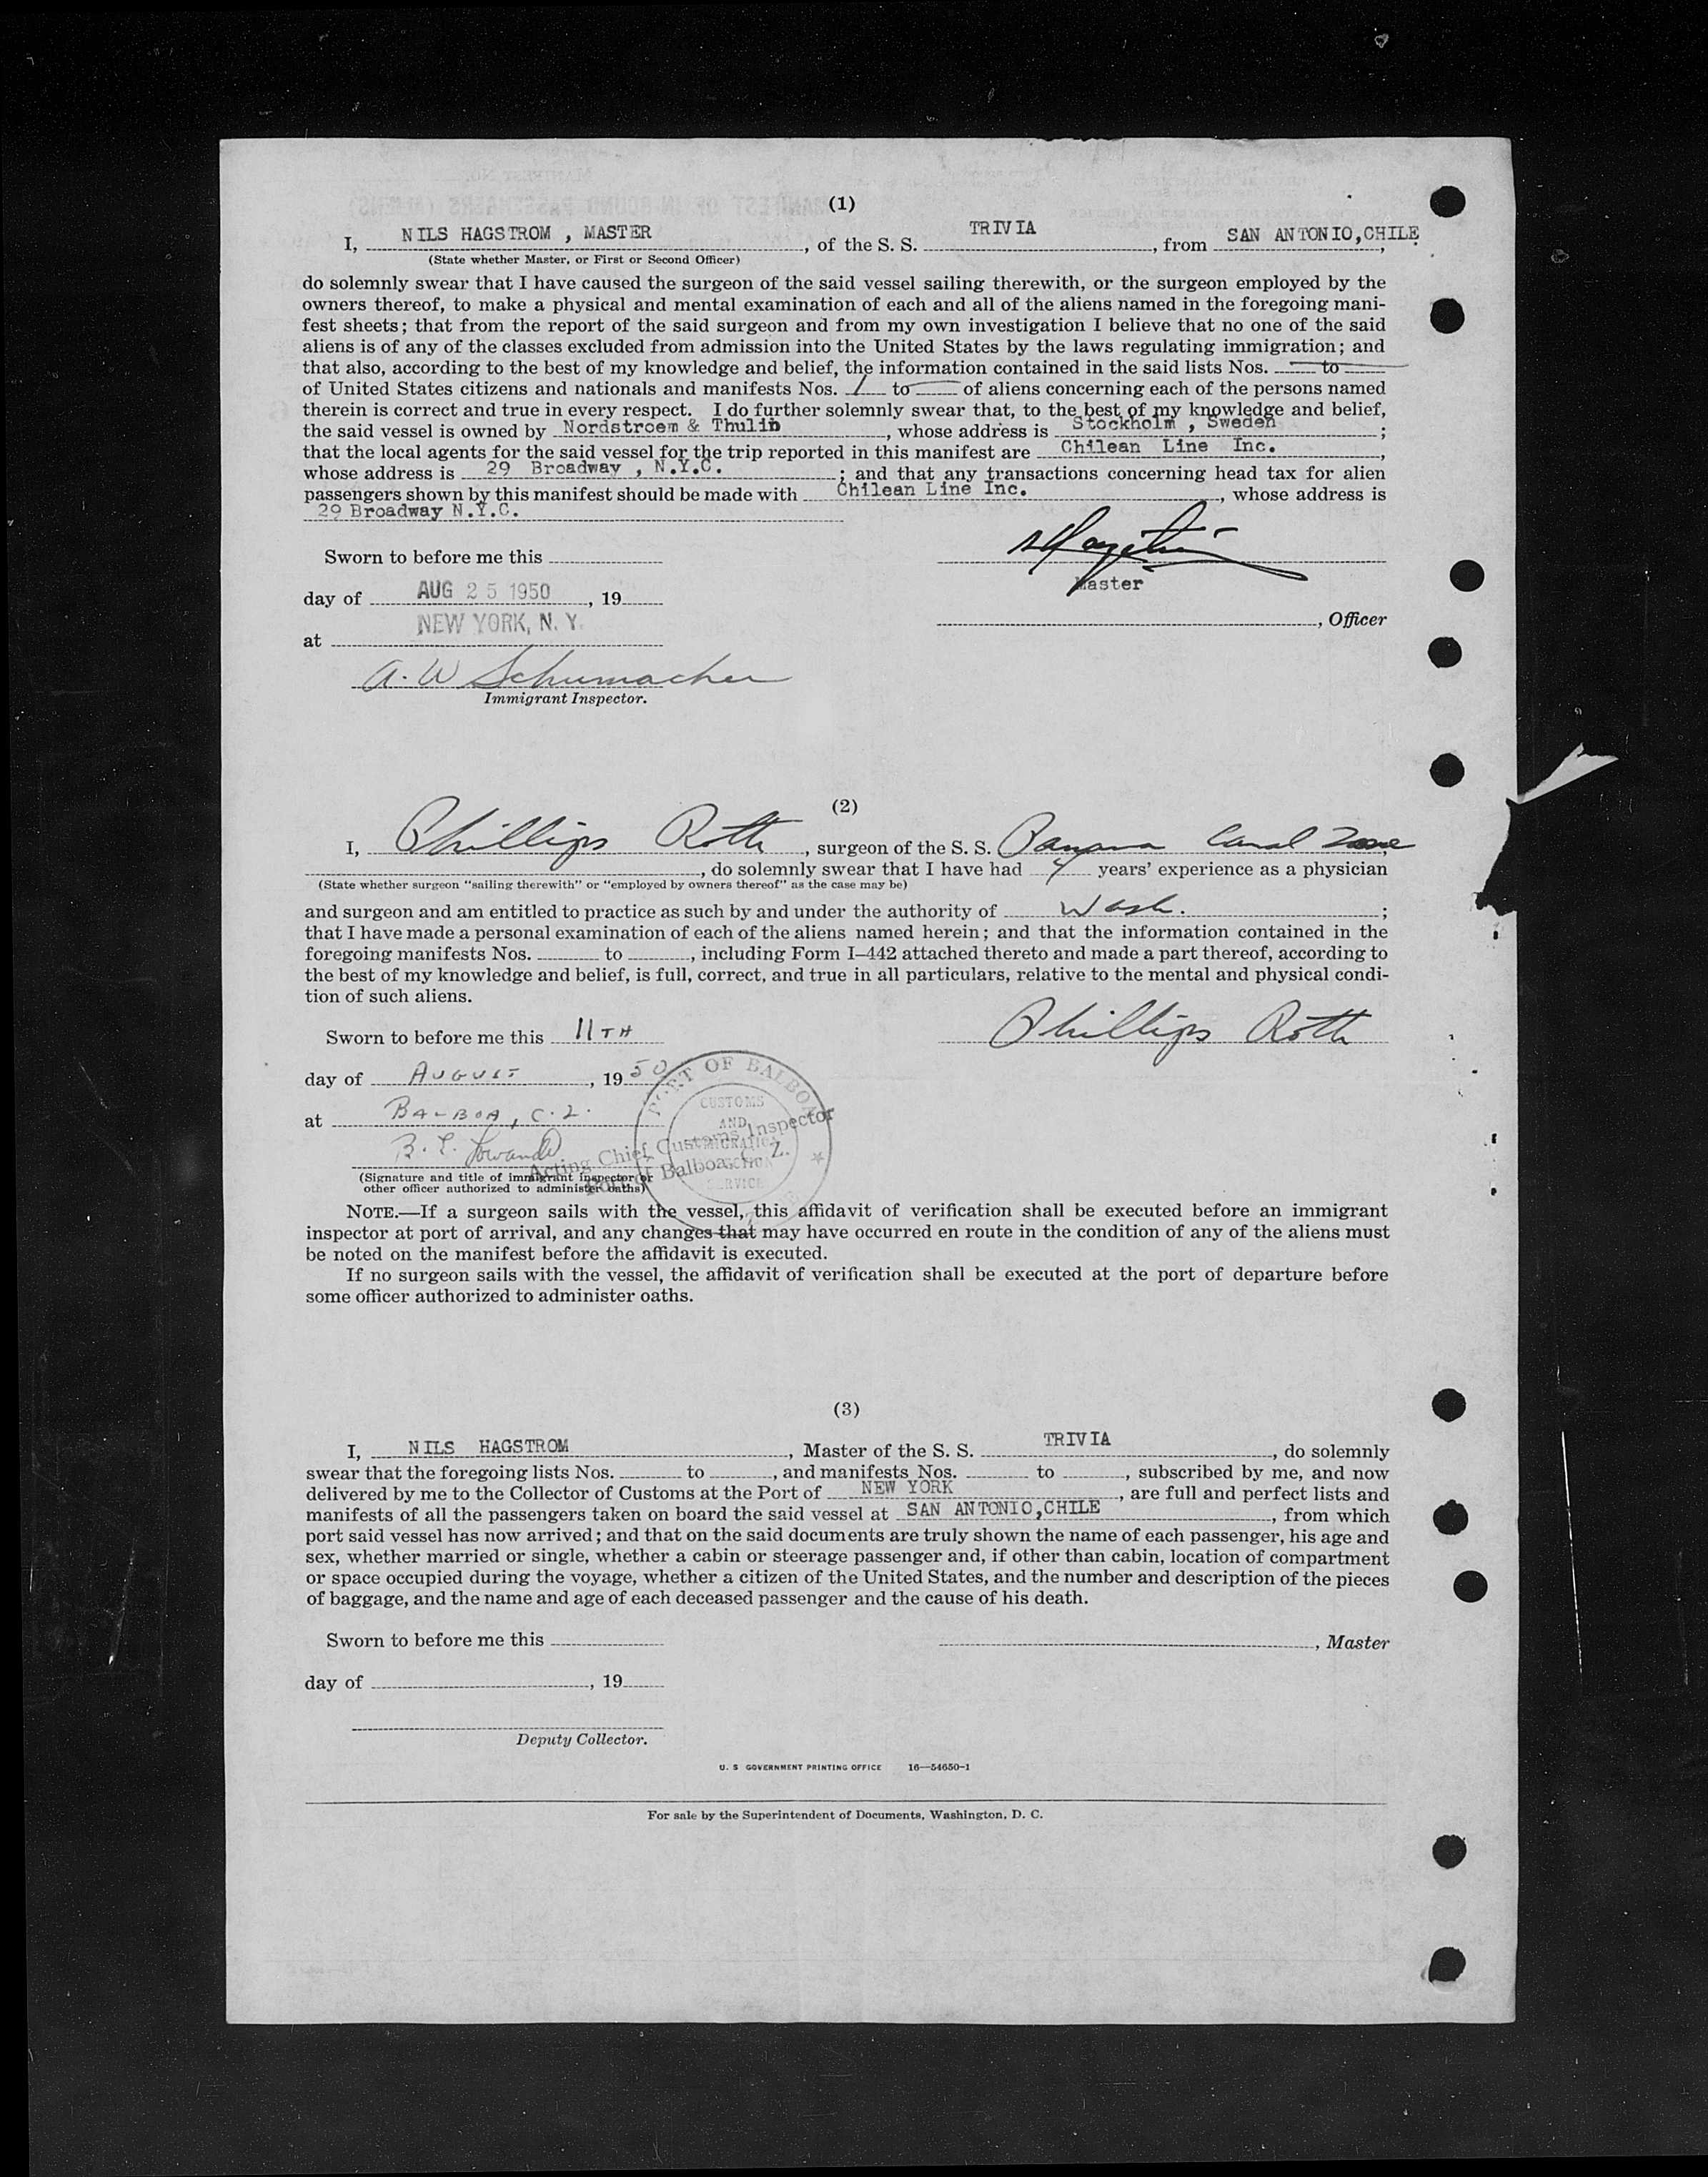 (1)
I, NILS HAGSTROM , MASTER, of the S. S. TRIVIA, from SAN ANTONIO,CHILE,
(State whether Master, or First or Second Officer)
do solemnly swear that I have caused the surgeon of the said vessel sailing therewith, or the surgeon employed by the
owners thereof, to make a physical and mental examination of each and all of the aliens named in the foregoing mani-
fest sheets; that from the report of the said surgeon and from my own investigation I believe that no one of the said
aliens is of any of the classes excluded from admission into the United States by the laws regulating immigration; and
that also, according to the best of my knowledge and belief, the information contained in the said lists Nos. — to —
of United States citizens and nationals and manifests Nos. 1 to — of aliens concerning each of the persons named
therein is correct and true in every respect. I do further solemnly swear that, to the best of my knowledge and belief,
the said vessel is owned by Nordstroem & Thulin, whose address is Stockholm , Sweden;
that the local agents for the said vessel for the trip reported in this manifest are Chilean Line Inc.,
whose address is 29 Broadway , N.Y.C.; and that any transactions concerning head tax for alien
passengers shown by this manifest should be made with Chilean Line Inc., whose address is
29 Broadway N.Y.C.
Sworn to before me this
Master
day of AUG 25 1950, 19
NEW YORK, N. Y.
, Officer
at
A. W Schumacher
Immigrant Inspector.
(2)
I, Phillips Roth, surgeon of the S. S. Panama Canal Zone,
, do solemnly swear that I have had 4 years' experience as a physician
(State whether surgeon "sailing therewith" or "employed by owners thereof" as the case may be)
and surgeon and am entitled to practice as such by and under the authority of Wash.;
that I have made a personal examination of each of the aliens named herein; and that the information contained in the
foregoing manifests Nos. to , including Form I–442 attached thereto and made a part thereof, according to
the best of my knowledge and belief, is full, correct, and true in all particulars, relative to the mental and physical condi-
tion of such aliens.
Sworn to before me this 11TH
Phillips Roth
day of AUGUST, 1950
PORT OF BALBOA
CUSTOMS
AND
IMMIGRATION
SERVICE
at BALBOA, C.Z.
Acting Chief Customs Inspector
Port of Balboa, C. Z.
(Signature and title of immigrant inspector or
other officer authorized to administer oaths)
NOTE.—If a surgeon sails with the vessel, this affidavit of verification shall be executed before an immigrant
inspector at port of arrival, and any changes that may have occurred en route in the condition of any of the aliens must
be noted on the manifest before the affidavit is executed.
If no surgeon sails with the vessel, the affidavit of verification shall be executed at the port of departure before
some officer authorized to administer oaths.
(3)
I, NILS HAGSTROM, Master of the S. S. TRIVIA, do solemnly
swear that the foregoing lists Nos. to , and manifests Nos. to , subscribed by me, and now
delivered by me to the Collector of Customs at the Port of NEW YORK, are full and perfect lists and
manifests of all the passengers taken on board the said vessel at SAN ANTONIO,CHILE, from which
port said vessel has now arrived; and that on the said documents are truly shown the name of each passenger, his age and
sex, whether married or single, whether a cabin or steerage passenger and, if other than cabin, location of compartment
or space occupied during the voyage, whether a citizen of the United States, and the number and description of the pieces
of baggage, and the name and age of each deceased passenger and the cause of his death.
Sworn to before me this
, Master
day of , 19
Deputy Collector.
U. S GOVERNMENT PRINTING OFFICE 16—54650-1
For sale by the Superintendent of Documents, Washington, D. C.